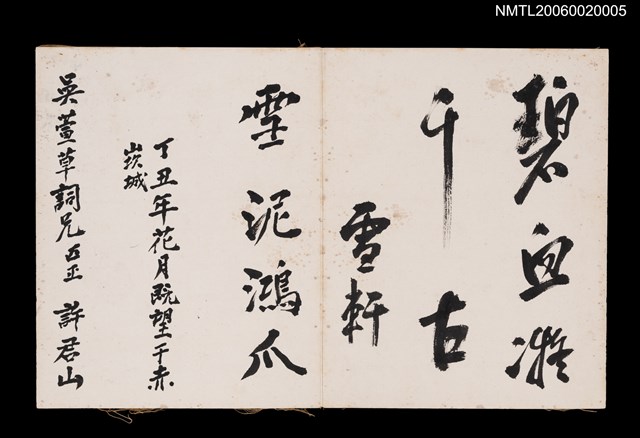 NMTL20060020005
碧血凝
千古
雪軒
雪泥鴻爪
丁丑年花月既望于赤
崁城
吳萱草詞兄正 許君山